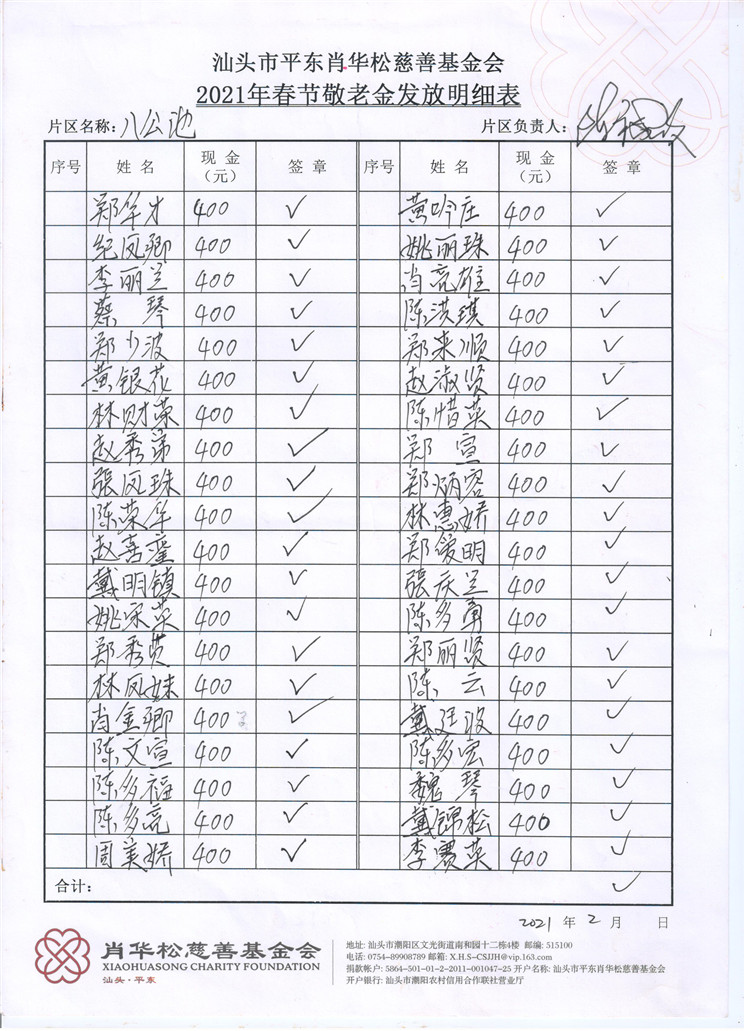 汕头市平东肖华松慈善基金会
2021年春节敬老金发放明细表
片区名称：八公池 片区负责人：
序号 姓名 现金（元） 签章 序号 姓名 现金（元） 签章
郑华才 400 ✓ 黄吟庄 400 ✓
纪凤卿 400 ✓ 姚丽珠 400 ✓
李丽兰 400 ✓ 肖亮雄 400 ✓
蔡琴 400 ✓ 陈洪琪 400 ✓
郑少波 400 ✓ 郑来顺 400 ✓
黄银花 400 ✓ 赵淑贤 400 ✓
林财荣 400 ✓ 陈惜英 400 ✓
赵秀弟 400 ✓ 郑宣 400 ✓
張凤珠 400 ✓ 郑炳容 400 ✓
陈荣华 400 ✓ 林惠娇 400 ✓
赵喜銮 400 ✓ 郑爱明 400 ✓
戴明镇 400 ✓ 張庆兰 400 ✓
姚宋荣 400 ✓ 陈多勇 400 ✓
郑秀贤 400 ✓ 郑丽贤 400 ✓
林凤妹 400 ✓ 陈云 400 ✓
肖金卿 400 ✓ 戴廷波 400 ✓
陈文宣 400 ✓ 陈多宏 400 ✓
陈多福 400 ✓ 魏琴 400 ✓
陈多亮 400 ✓ 戴錦松 400 ✓
周美娇 400 ✓ 李赛英 400 ✓
合计： ✓
2021 年 2 月 日
肖华松慈善基金会
XIAOHUASONG CHARITY FOUNDATION
汕头·平东
地址: 汕头市潮阳区文光街道南和园十二栋4楼 邮编: 515100
电话: 0754-89908789 邮箱: X.H.S-CSJJH@vip.163.com
捐款帐户: 5864-501-01-2-2011-001047-25 开户名称: 汕头市平东肖华松慈善基金会
开户银行: 汕头市潮阳农村信用合作联社营业厅